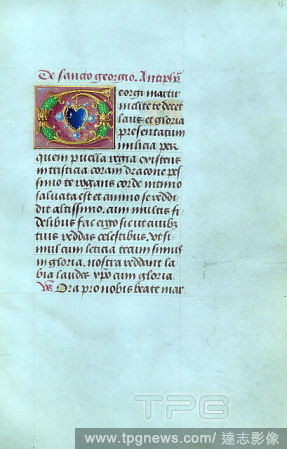 De sancto georgio. Antiphõ
Georgi martir
inclite te decet
laus et gloria
presentatum
milicia per
quem puella regia existens
in tristicia coram dracone pes
simo te rogans corde intimo
saluata est et animo se reddi
dit altissimo. cum multis fi
delibus fac ergo sic ut a cuibz
tuis reddas celestibus, vt si
mul cum leticia tecum simus
in gloria, nostra reddant la
bia laudes xpo cum gloria.
Ora pro nobis beate mar
TPG
www.tpgnews.com/ 達志影像